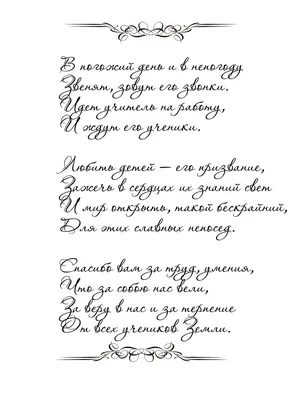 В погожий день и в непогоду
Звенят, зовут его звонки.
Идет учитель на работу,
И ждут его ученики.
Любить детей — его призвание,
Зажечь в сердцах их знаний свет
И мир открыть, такой бескрайний,
Для этих славных непосед.
Спасибо вам за труд, умения,
Что за собою нас вели,
За веру в нас и за терпение
От всех учеников Земли.